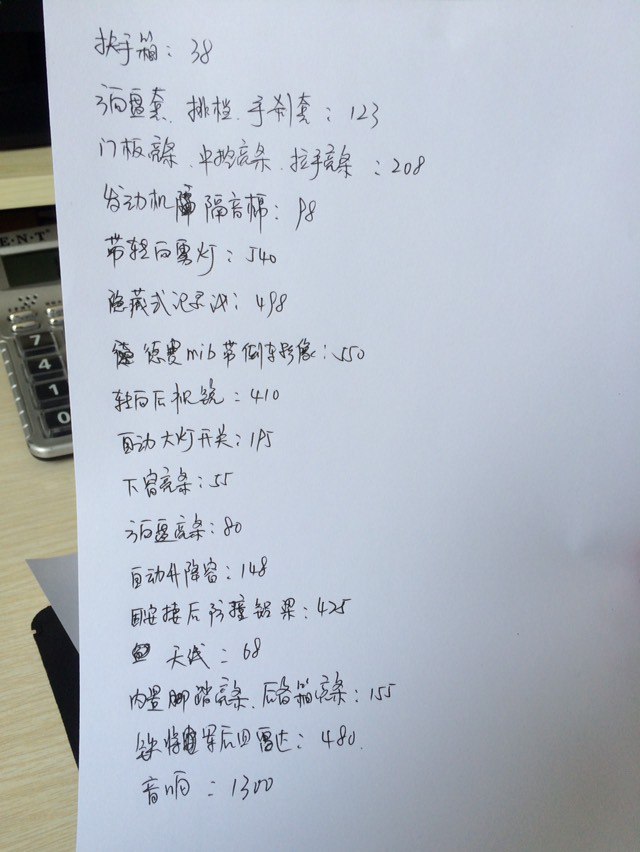 扶手箱：38
方向盘套、排档、手刹套：123
门板亮条、中控亮条、拉手亮条：208
发动机隔音棉：98
带转向雾灯：540
隐藏式记录仪：498
德赛mib带倒车影像：550
转向后视镜：410
自动大灯开关：195
下窗亮条：55
方向盘亮条：80
自动升降窗：148
固安捷后防撞铝梁：425
天线：68
内置脚踏亮条、后备箱亮条：155
铁将军后四雷达：480.
音响：1300
E·N·T
7
4
1
0